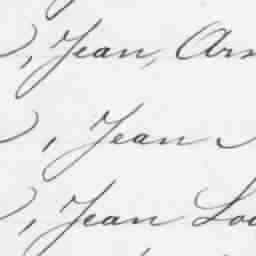 , Jean, Ar
, Jean
, Jean Lo